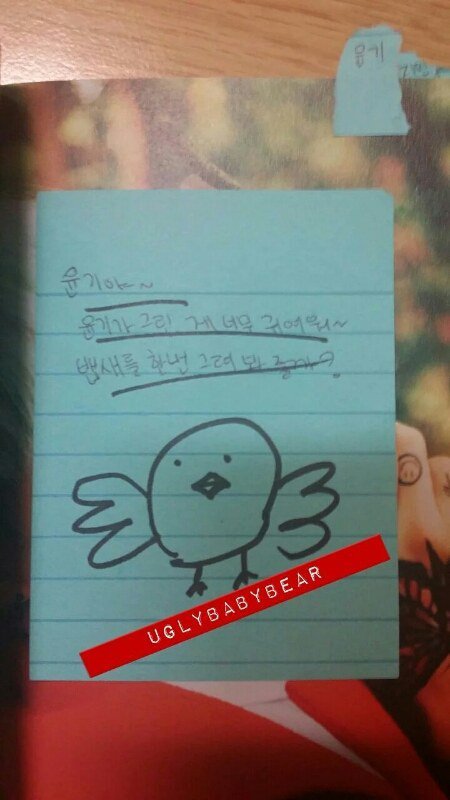 윤기
윤기야~
윤기가 그린 게 너무 귀여워~
뱁새를 한번 그려 봐
UGLYBABYBEAR